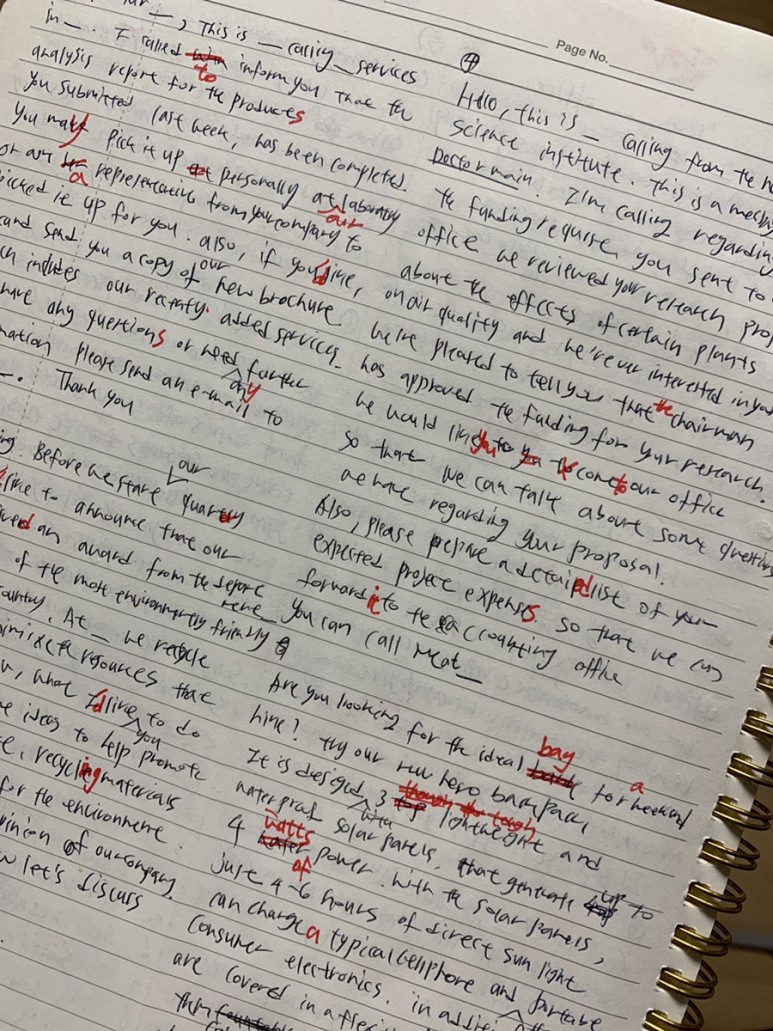 Page No.
, This is _ calling _ services
in _ . I called to inform you that the
analysis report for the products
you submitted last week, has been completed.
You may pick it up personally at our laboratory
or a representative from your company to
picked it up for you. also, if you'd like,
and send you a copy of our new brochure
includes our recently added services.
any questions or need any further
please send an e-mail to
Thank you
Before we start our quarterly
like to announce that our
an award from the
of the most environmently friendly
At _ we recycle
resources that
what I'd like you to do
ideas to help promote
recycling materials
for the environment.
of our company.
let's discuss
④
Hello, this is _ calling from the
Science institute. This is a
Doctor main. I'm calling regarding
the funding request you sent to
office we reviewed your research
about the effects of certain plants
on air quality and we're very interested in your
we're pleased to tell you that the chairman
has approved the funding for your research.
we would like you to come to our office
so that we can talk about some questions
we have regarding your proposal.
Also, please prepare a detailed list of your
expected project expenses. so that we can
forward it to the accounting office
You can call me at _
Are you looking for the ideal bag for a weekend
hike? try our new hero backpack,
It is designed with 3 tough lightweight and
waterproof solar panels, that generate up to
4 watts of power. With the solar panels,
just 4-6 hours of direct sun light
can charge a typical cellphone and
consumer electronics.
are covered in a